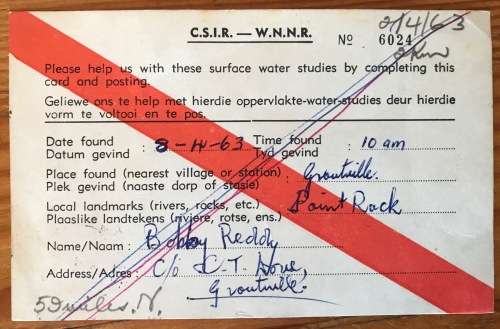 C.S.I.R. — W.N.N.R.
2/4/63
Nº 6024
Please help us with these surface water studies by completing this
card and posting.
Geliewe ons te help met hierdie oppervlakte-water-studies deur hierdie
vorm te voltooi en te pos.
Date found : 8-4-63 Time found : 10 am
Datum gevind Tyd gevind
Place found (nearest village or station) : Groutville.
Plek gevind (naaste dorp of stasie)
Local landmarks (rivers, rocks, etc.) : Point Rock
Plaaslike landtekens (riviere, rotse, ens.)
Name/Naam : Bobby Reddy
Address/Adres : C/o
Groutville.
N.